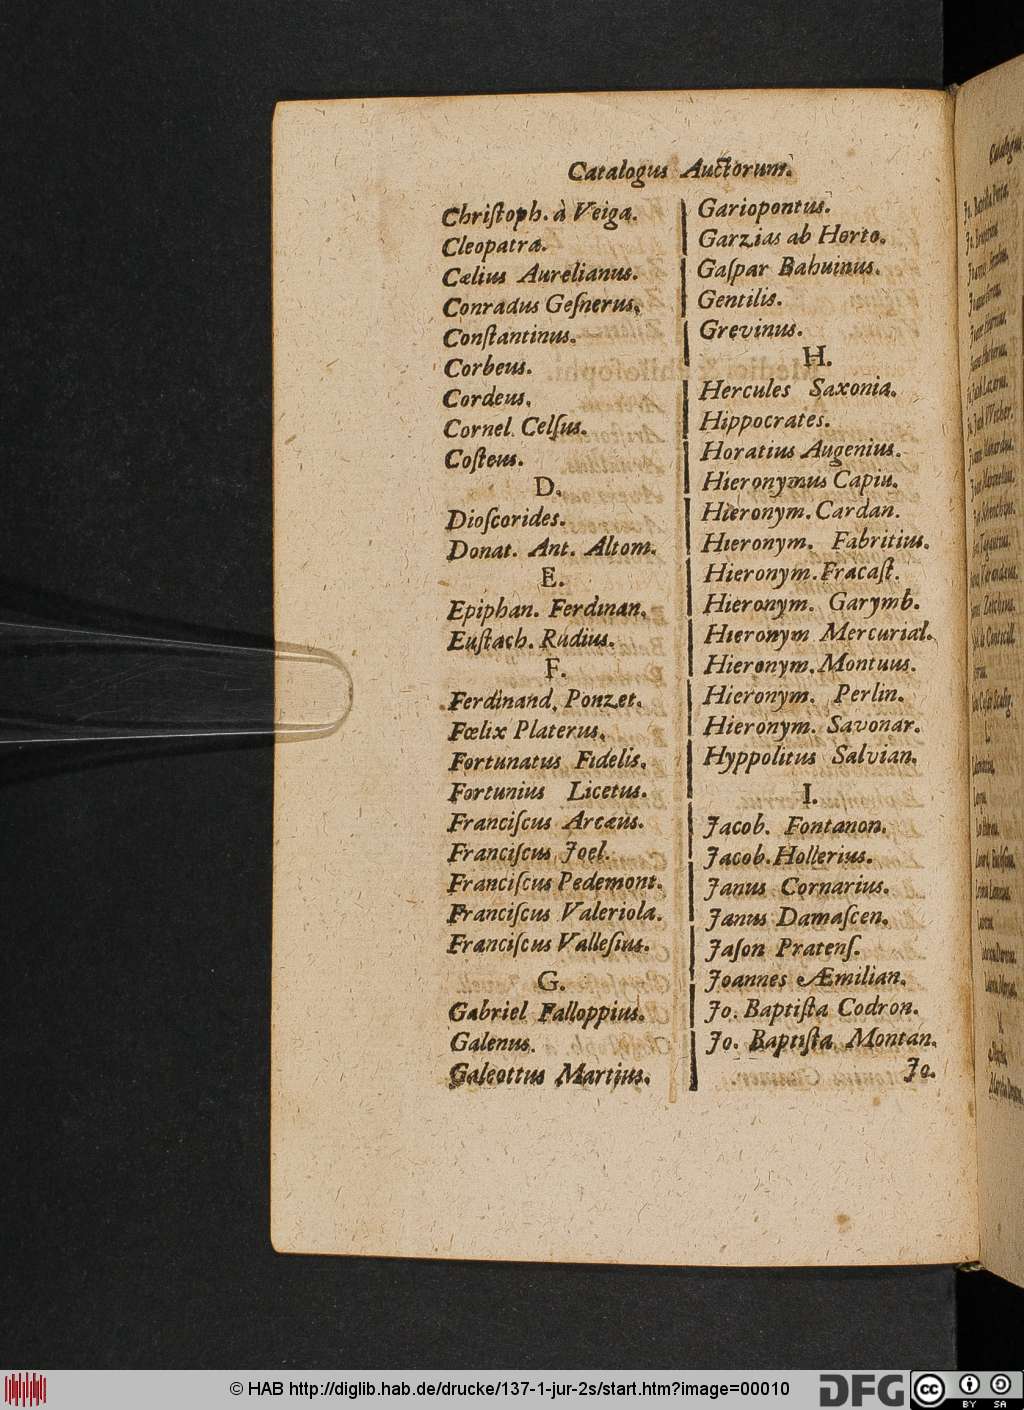 Catalogus Auctorum.
Chriſtoph. à Veiga.
Cleopatra.
Cælius Aurelianus.
Conradus Geſnerus.
Conſtantinus.
Corbeus.
Cordeus.
Cornel. Celſus.
Coſteus.
D.
Dioſcorides.
Donat. Ant. Altom.
E.
Epiphan. Ferdinan.
Euſtach. Rudius.
F.
Ferdinand. Ponzet.
Fœlix Platerus.
Fortunatus Fidelis.
Fortunius Licetus.
Franciſcus Arcæus.
Franciſcus Joel.
Franciſcus Pedemont.
Franciſcus Valeriola.
Franciſcus Valleſius.
G.
Gabriel Falloppius.
Galenus.
Galeottus Martius.
Gariopontus.
Garzias ab Horto.
Gaſpar Bahuinus.
Gentilis.
Grevinus.
H.
Hercules Saxonia.
Hippocrates.
Horatius Augenius.
Hieronymus Capiu.
Hieronym. Cardan.
Hieronym. Fabritius.
Hieronym. Fracaſt.
Hieronym. Garymb.
Hieronym Mercurial.
Hieronym. Montuus.
Hieronym. Perlin.
Hieronym. Savonar.
Hyppolitus Salvian.
I.
Jacob. Fontanon.
Jacob. Hollerius.
Janus Cornarius.
Janus Damaſcen.
Jaſon Pratenſ.
Joannes Æmilian.
Jo. Baptiſta Codron.
Jo. Baptiſta Montan.
Jo.
© HAB http://diglib.hab.de/drucke/137-1-jur-2s/start.htm?image=00010
DFG
cc
BY SA